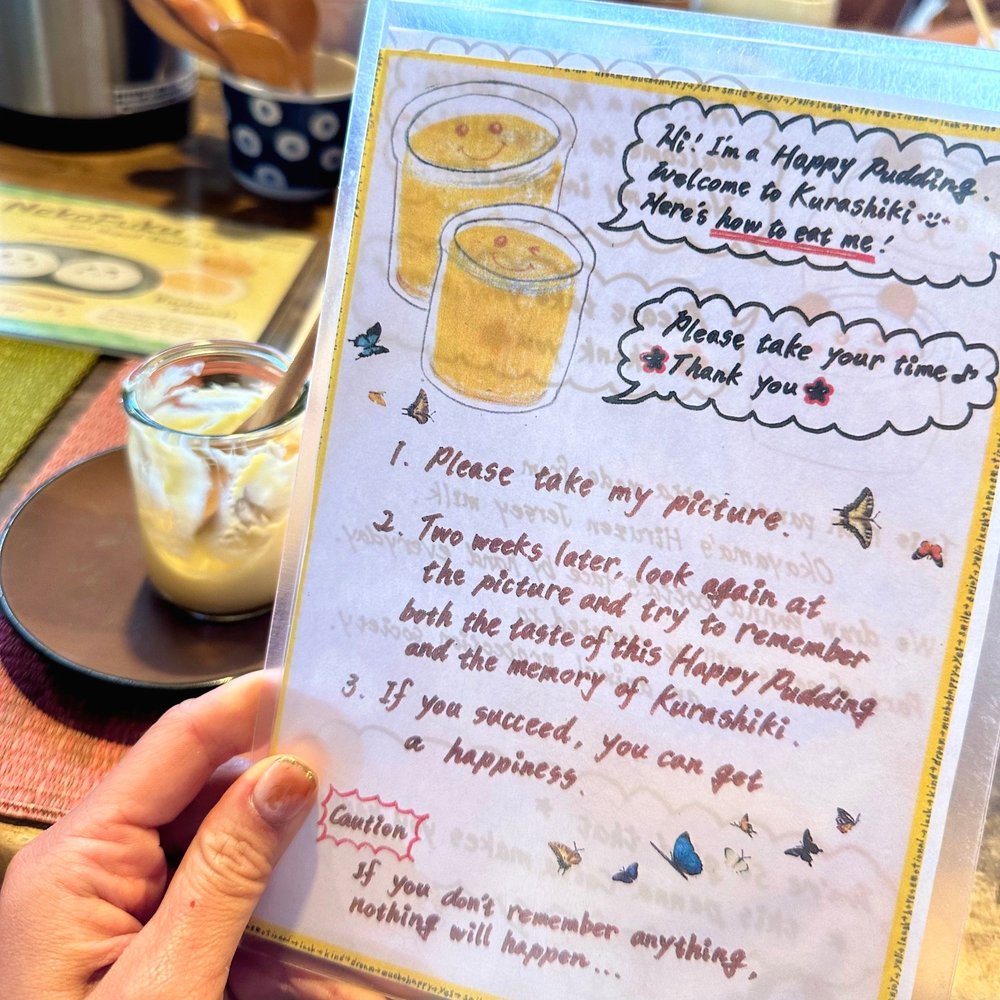 Hi! I'm a Happy Pudding.
Welcome to Kurashiki
Here's how to eat me!
Please take your time♪
Thank you
1. Please take my picture.
2. Two weeks later, look again at
the picture and try to remember
both the taste of this Happy Pudding
and the memory of Kurashiki.
3. If you succeed, you can get
a happiness.
Caution
If you don't remember anything,
nothing will happen...